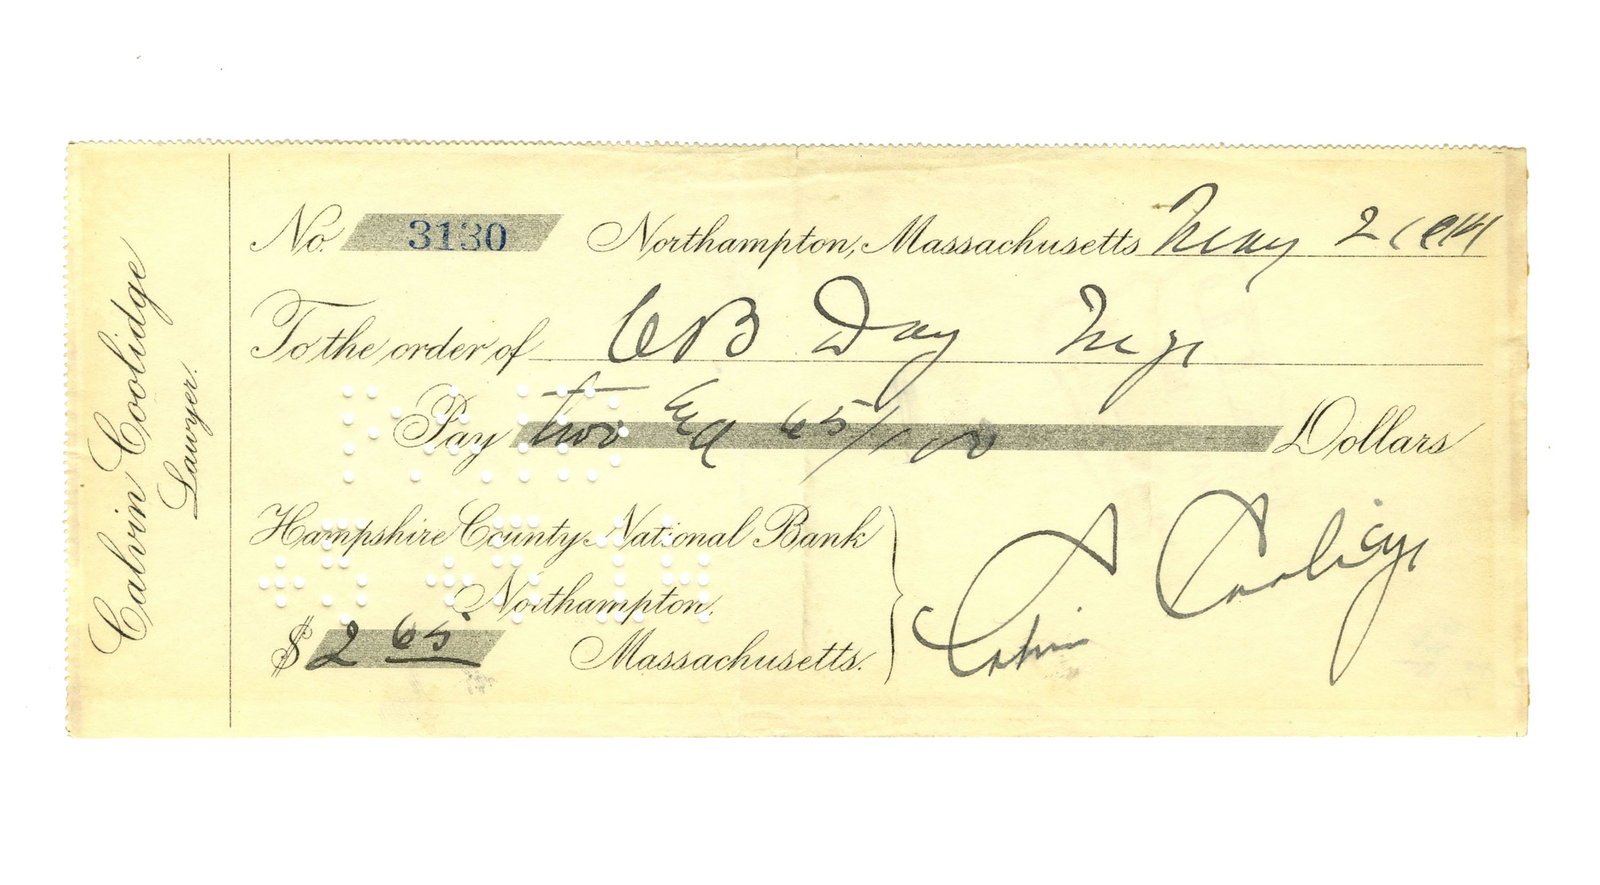 Calvin Coolidge
Lawyer.
No. 3130 Northampton, Massachusetts May 2 1914
To the order of CB Day Mgr
Pay two and 65/100 Dollars
Hampshire County National Bank
Northampton,
Massachusetts.
$ 2 65
Calvin Coolidge
PAID